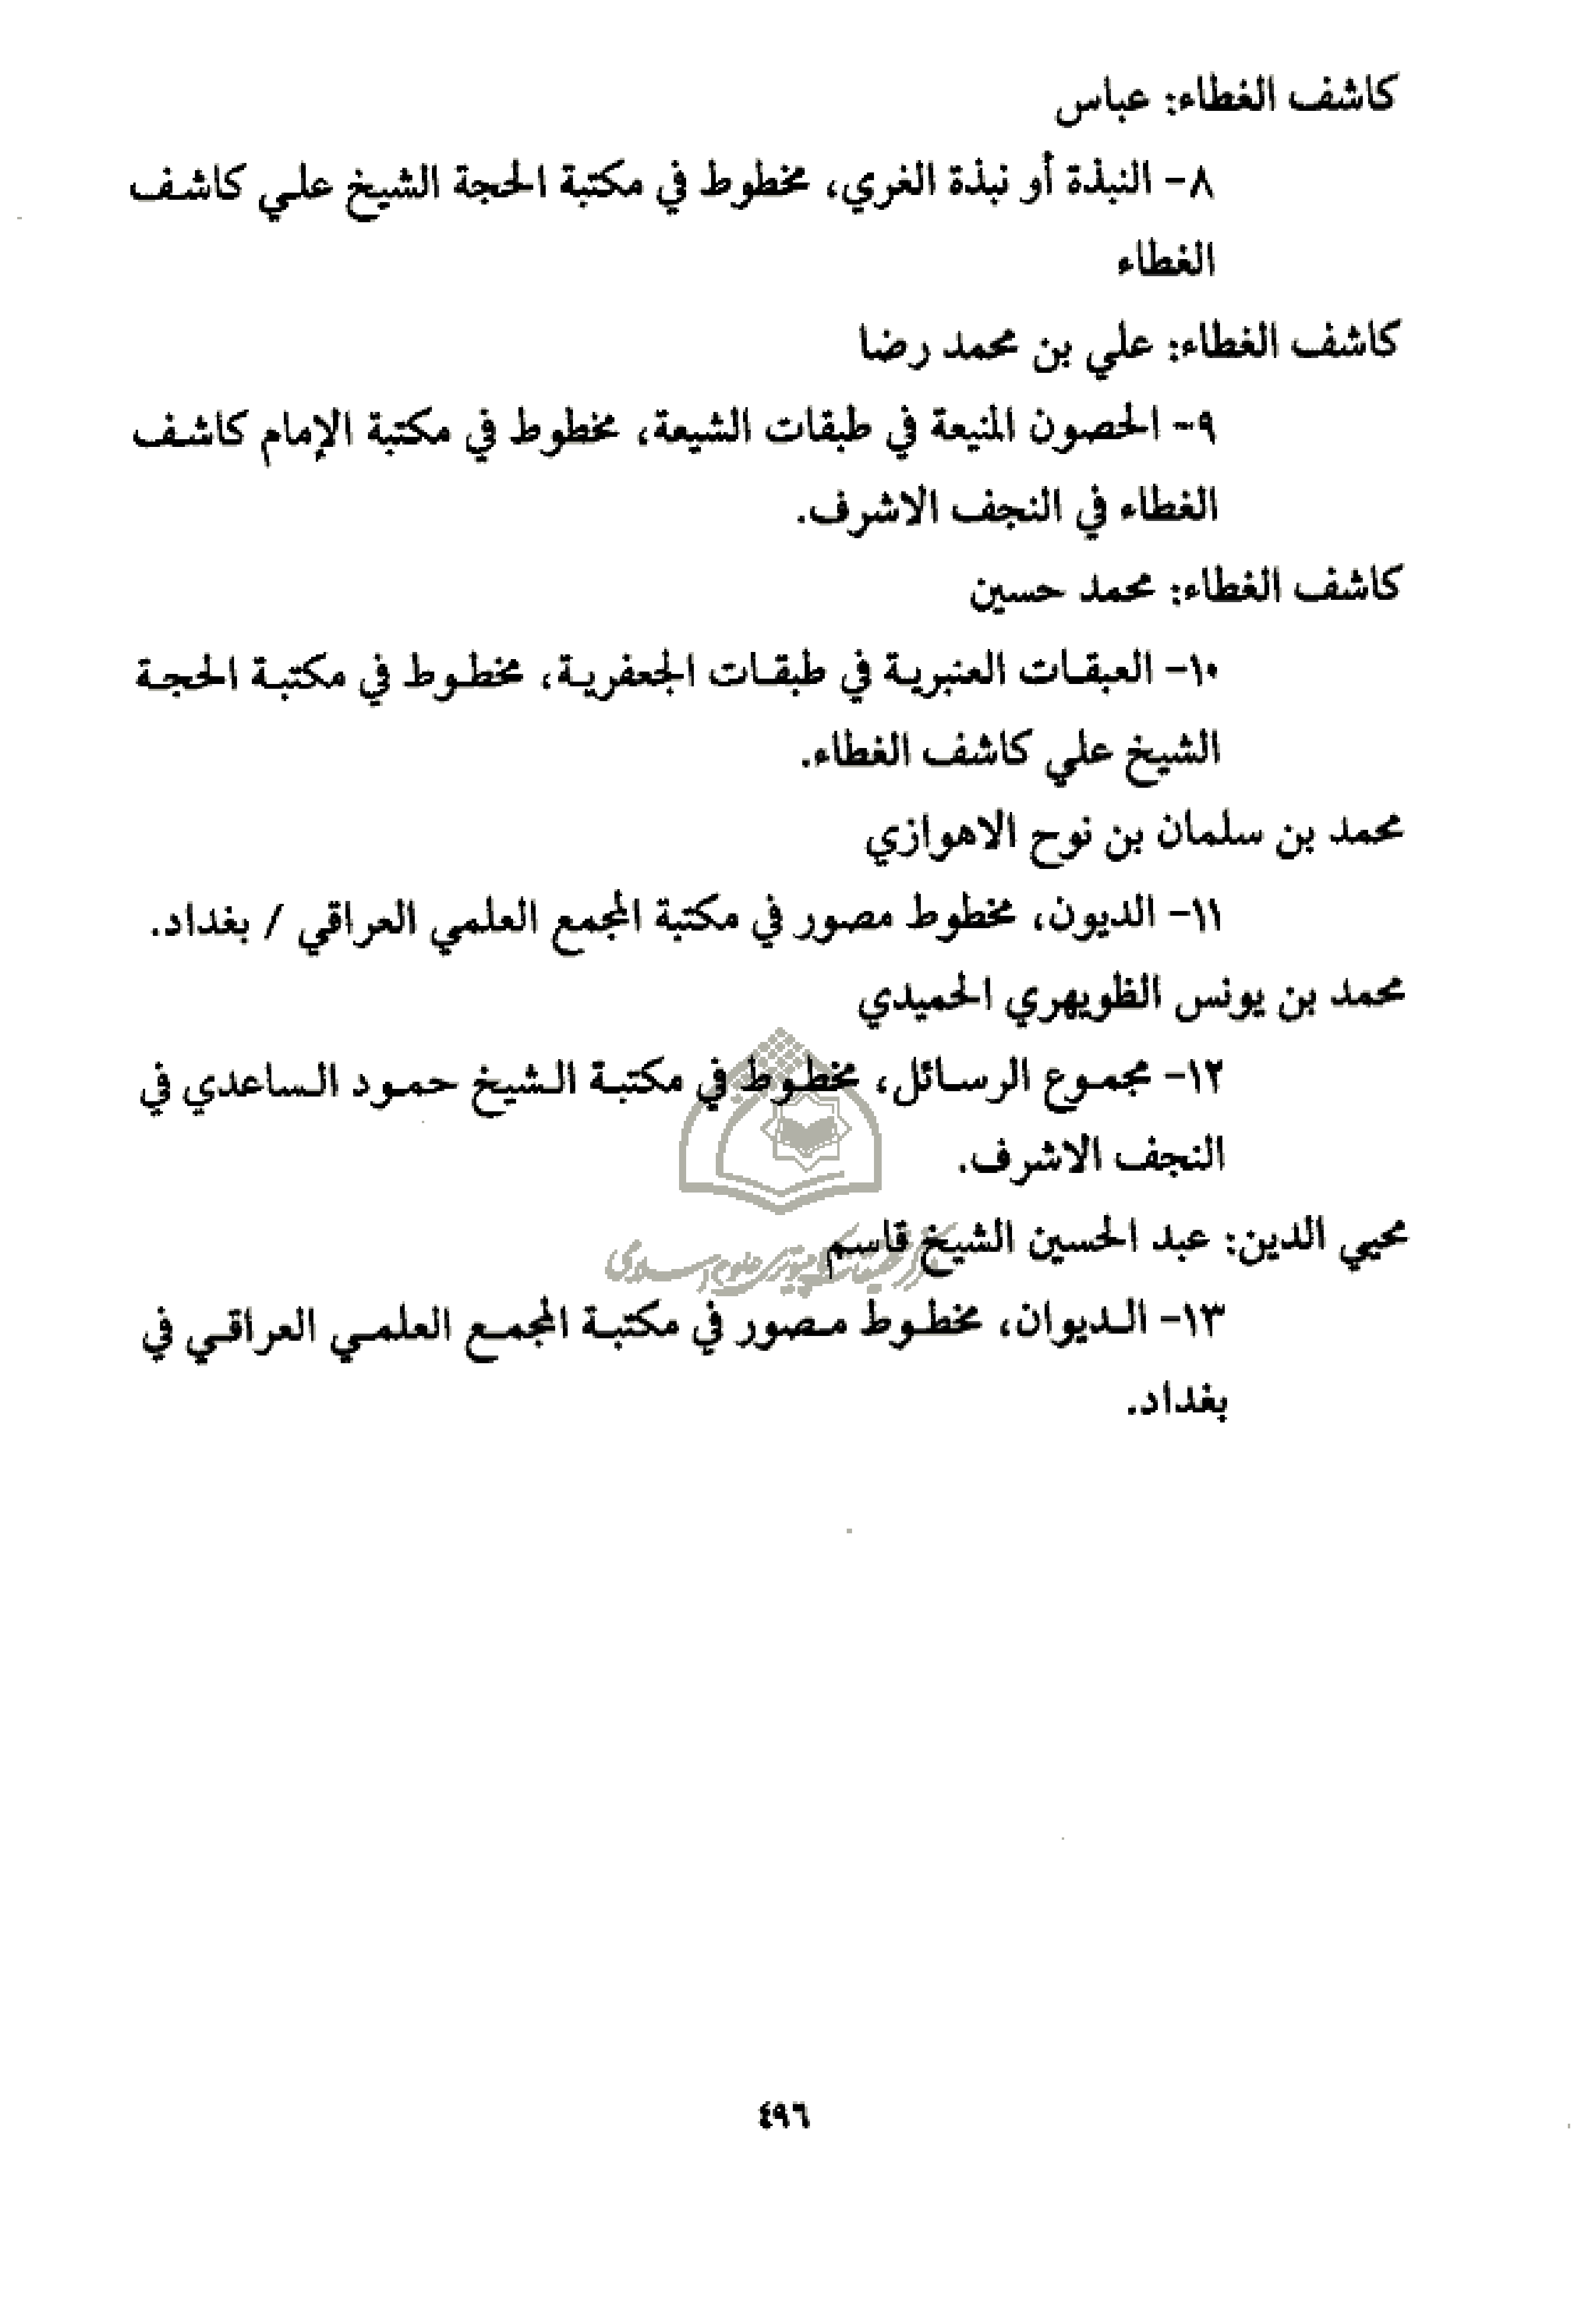 كاشف الغطاء: عباس
٨- النبذة أو نبذة الغري، مخطوط في مكتبة الحجة الشيخ علي كاشف
الغطاء
كاشف الغطاء: علي بن محمد رضا
٩- الحصون المنيعة في طبقات الشيعة، مخطوط في مكتبة الإمام كاشف
الغطاء في النجف الاشرف.
كاشف الغطاء: محمد حسين
١٠- العبقات العنبرية في طبقات الجعفرية، مخطوط في مكتبة الحجة
الشيخ علي كاشف الغطاء.
محمد بن سلمان بن نوح الاهوازي
١١- الديون، مخطوط مصور في مكتبة المجمع العلمي العراقي / بغداد.
محمد بن يونس الظويهري الحميدي
١٢- مجموع الرسائل، مخطوط في مكتبة الشيخ حمود الساعدي في
النجف الاشرف.
محيي الدين: عبد الحسين الشيخ قاسم
١٣- الديوان، مخطوط مصور في مكتبة المجمع العلمي العراقي في
بغداد.
٤٩٦